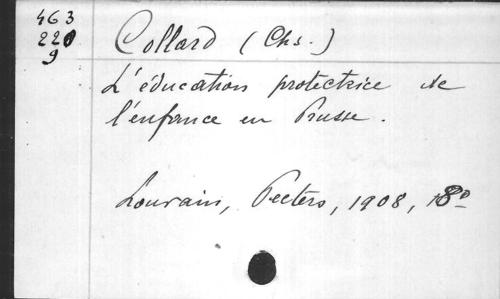 463
220
9
Collard (Chs.)
L'éducation protectrice de
l'enfance en Prusse.
Louvain, Peeters, 1908, 8º